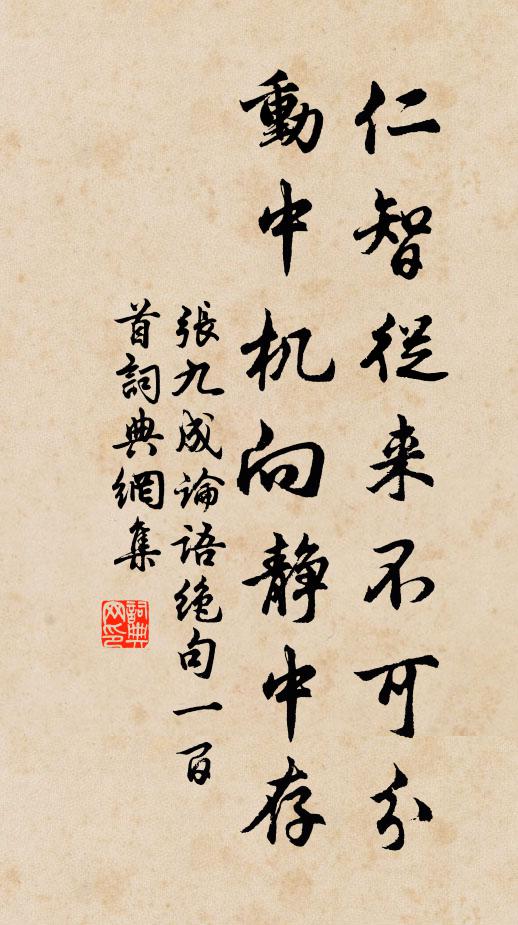 仁智從来不可分
動中机向静中存
張九成論語絶句一百
首詞典網集
詞典网印